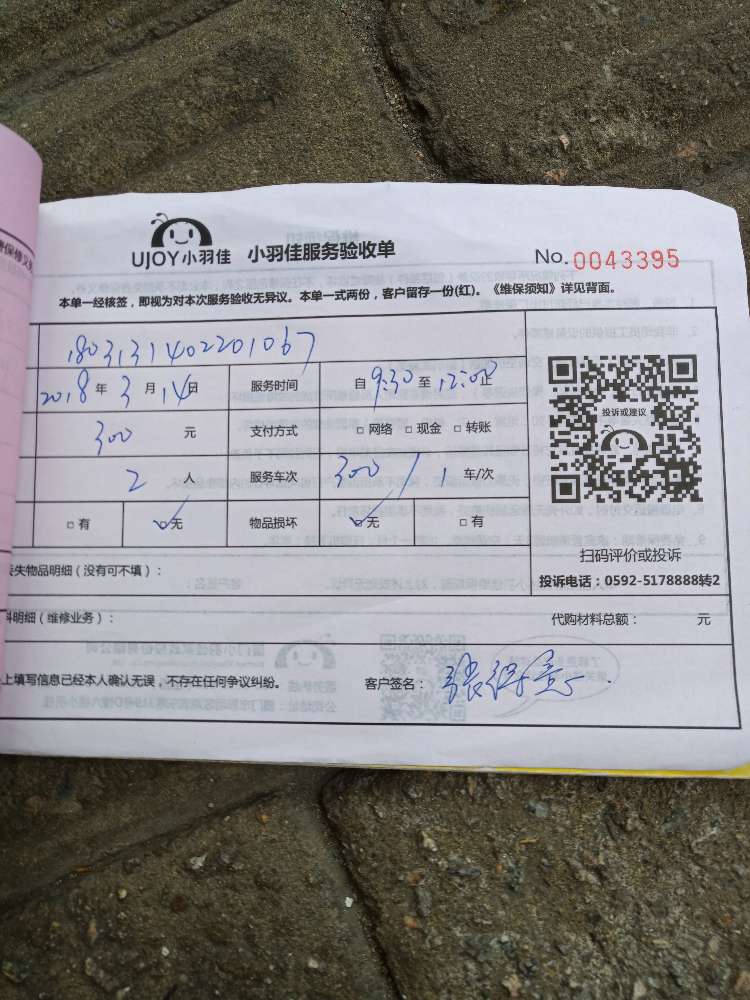 UJOY小羽佳 小羽佳服务验收单 No.0043395
本单一经核签，即视为对本次服务验收无异议。本单一式两份，客户留存一份(红)。《维保须知》详见背面。
1803131402201067
2018年3月14日 服务时间 自9:30至12:00止
300元 支付方式 □网络 □现金 □转账
投诉或建议
2人 服务车次 300/1车/次
□有 ☑无 物品损坏 ☑无 □有
扫码评价或投诉
失物品明细（没有可不填）：
投诉电话：0592-5178888转2
料明细（维修业务）： 代购材料总额： 元
上填写信息已经本人确认无误，不存在任何争议纠纷。 客户签名：